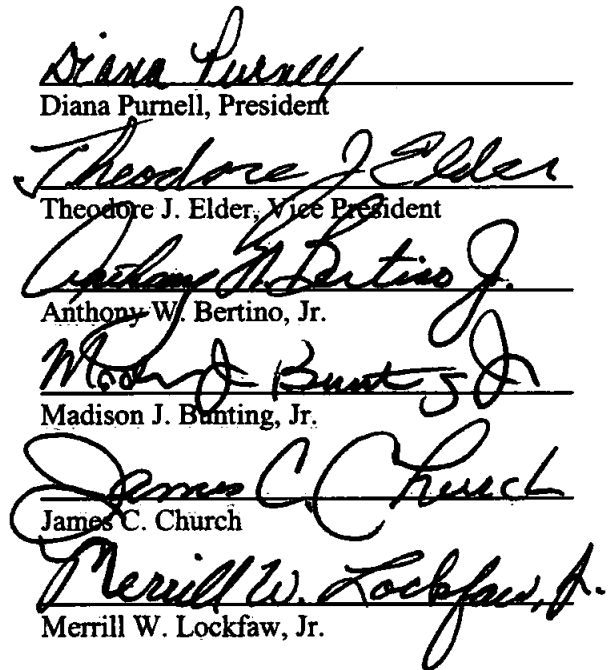 Diana Purnell
Diana Purnell, President
Theodore J Elder
Theodore J. Elder, Vice President
Anthony W. Bertino Jr.
Anthony W. Bertino, Jr.
Madison J Bunting Jr
Madison J. Bunting, Jr.
James C. Church
James C. Church
Merrill W. Lockfaw, Jr.
Merrill W. Lockfaw, Jr.